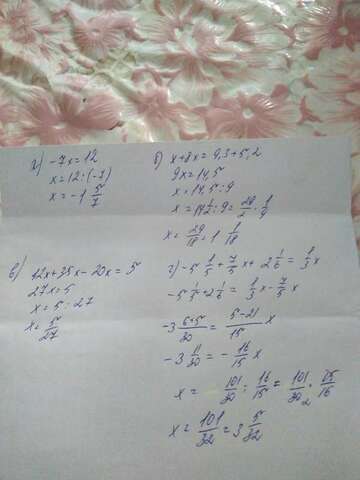 а) -7x=12
x=12:(-7)
x=-1 5/7
б) x+8x=9,3+5,2
9x=14,5
x=14,5:9
x=14 1/2:9=29/2·1/9
x=29/18=1 11/18
в) 12x+35x-20x=5
27x=5
x=5:27
x=5/27
г) -5 1/5+7/5x+2 1/6=1/3x
-5 1/5+2 1/6=1/3x-7/5x
-3 6+5/30=5-21/15x
-3 11/30=-16/15x
x=101/30:16/15=101/30 2·15/16
x=101/32=3 5/32